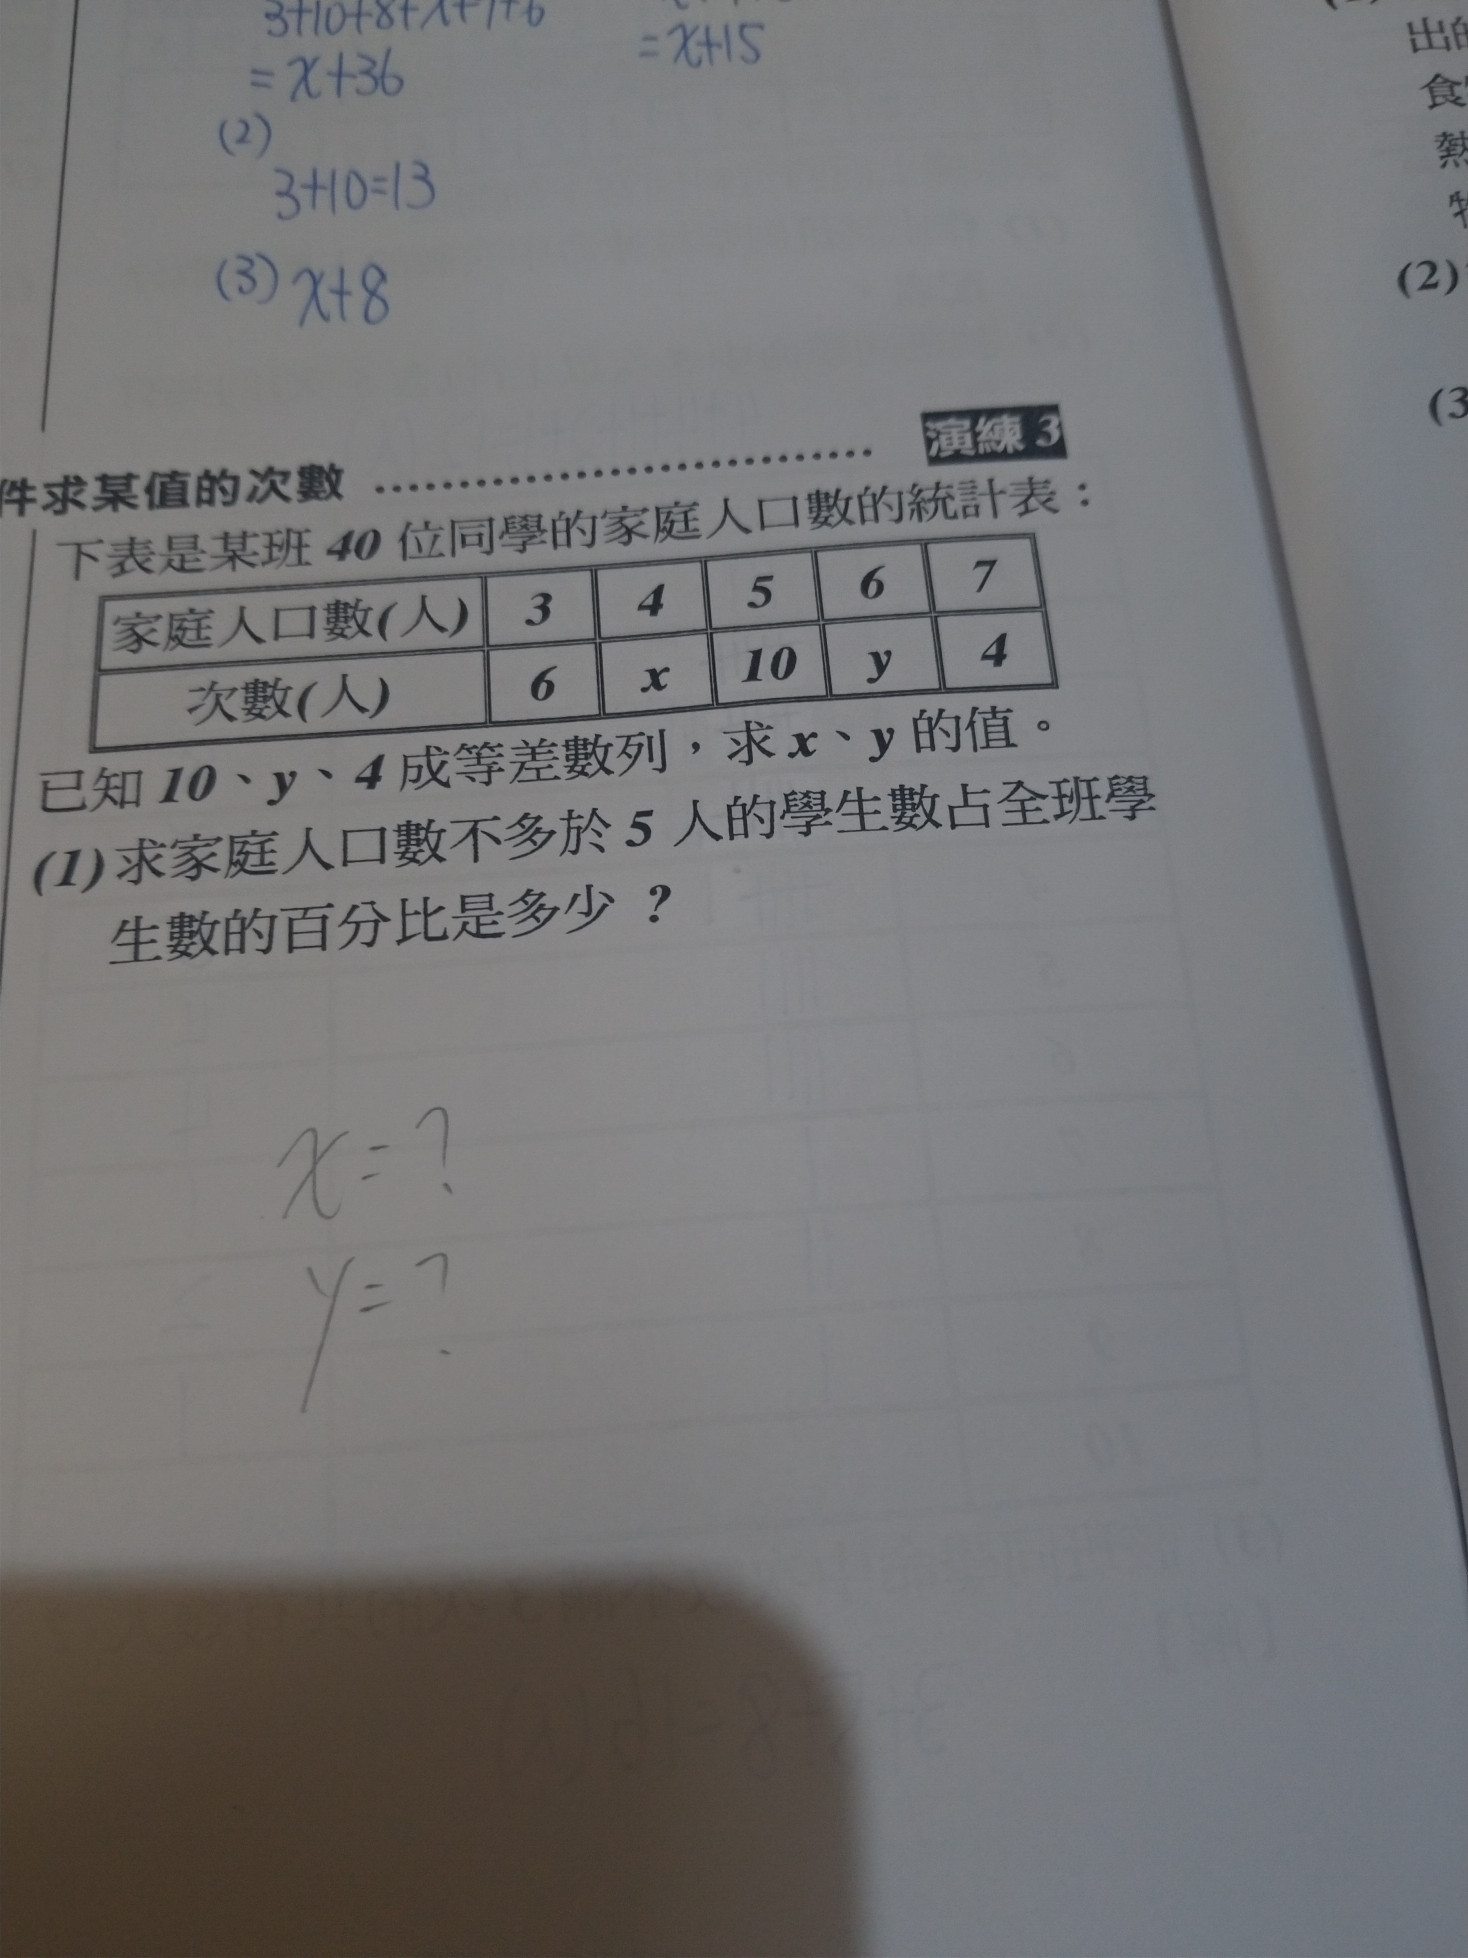 3+10+8+x+9+6
= x+36
= x+15
(2)
3+10=13
(3) x+8
件求某值的次數 演練 3
下表是某班 40 位同學的家庭人口數的統計表：
家庭人口數(人) 3 4 5 6 7
次數(人) 6 x 10 y 4
已知 10、y、4 成等差數列，求 x、y 的值。
(1) 求家庭人口數不多於 5 人的學生數占全班學
生數的百分比是多少？
x=?
y=?
出
食
熱
(2)
(3